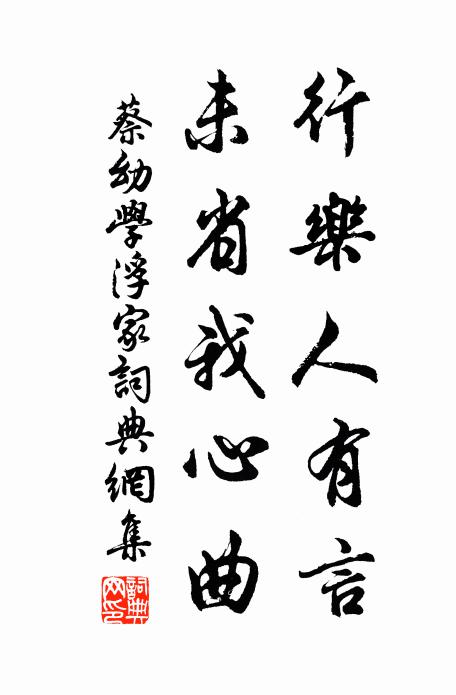 行樂人有言
未省我心曲
蔡幼學浮家詞典網集
詞典網印